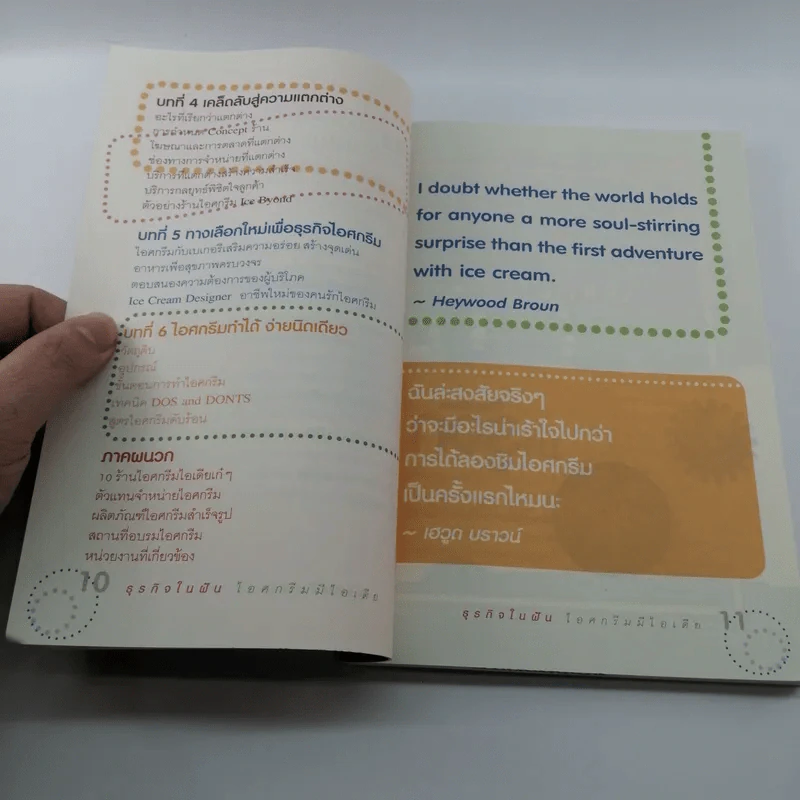 บทที่ 4 เคล็ดลับสู่ความแตกต่าง
อะไรที่เรียกว่าแตกต่าง
การกำหนด Concept ร้าน
โฆษณาและการตลาดที่แตกต่าง
ช่องทางการจำหน่ายที่แตกต่าง
บริการที่แตกต่างสร้างความสำเร็จ
บริการกลยุทธ์พิชิตใจลูกค้า
ตัวอย่างร้านไอศกรีม Ice Byond
บทที่ 5 ทางเลือกใหม่เพื่อธุรกิจไอศกรีม
ไอศกรีมกับเบเกอรีเสริมความอร่อย สร้างจุดเด่น
อาหารเพื่อสุขภาพครบวงจร
ตอบสนองความต้องการของผู้บริโภค
Ice Cream Designer อาชีพใหม่ของคนรักไอศกรีม
บทที่ 6 ไอศกรีมทำได้ ง่ายนิดเดียว
วัตถุดิบ
อุปกรณ์
ขั้นตอนการทำไอศกรีม
เทคนิค DOS and DONTS
สูตรไอศกรีมดับร้อน
ภาคผนวก
10 ร้านไอศกรีมไอเดียเก๋ ๆ
ตัวแทนจำหน่ายไอศกรีม
ผลิตภัณฑ์ไอศกรีมสำเร็จรูป
สถานที่อบรมไอศกรีม
หน่วยงานที่เกี่ยวข้อง
10 ธุรกิจในฝัน ไอศกรีมมีไอเดีย
I doubt whether the world holds
for anyone a more soul-stirring
surprise than the first adventure
with ice cream.
~ Heywood Broun
ฉันล่ะสงสัยจริงๆ
ว่าจะมีอะไรน่าเร้าใจไปกว่า
การได้ลองชิมไอศกรีม
เป็นครั้งแรกไหมนะ
~ เฮวูด บราวน์
ธุรกิจในฝัน ไอศกรีมมีไอเดีย 11